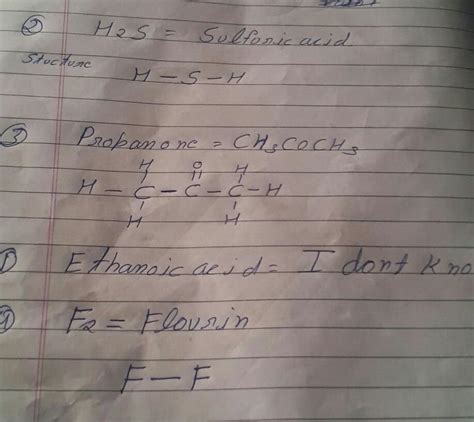 ② H2S = Sulfonic acid
Structure
H — S — H
③ Propanone = CH3COCH3
H O H
H — C — C — C — H
H H
Ethanoic acid = I dont kno
F2 = Flourin
F — F